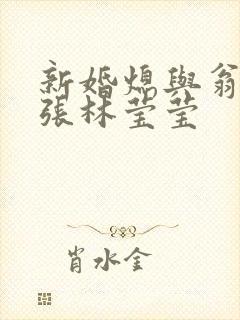 新婚熄與翁
張林莹莹
肖水金